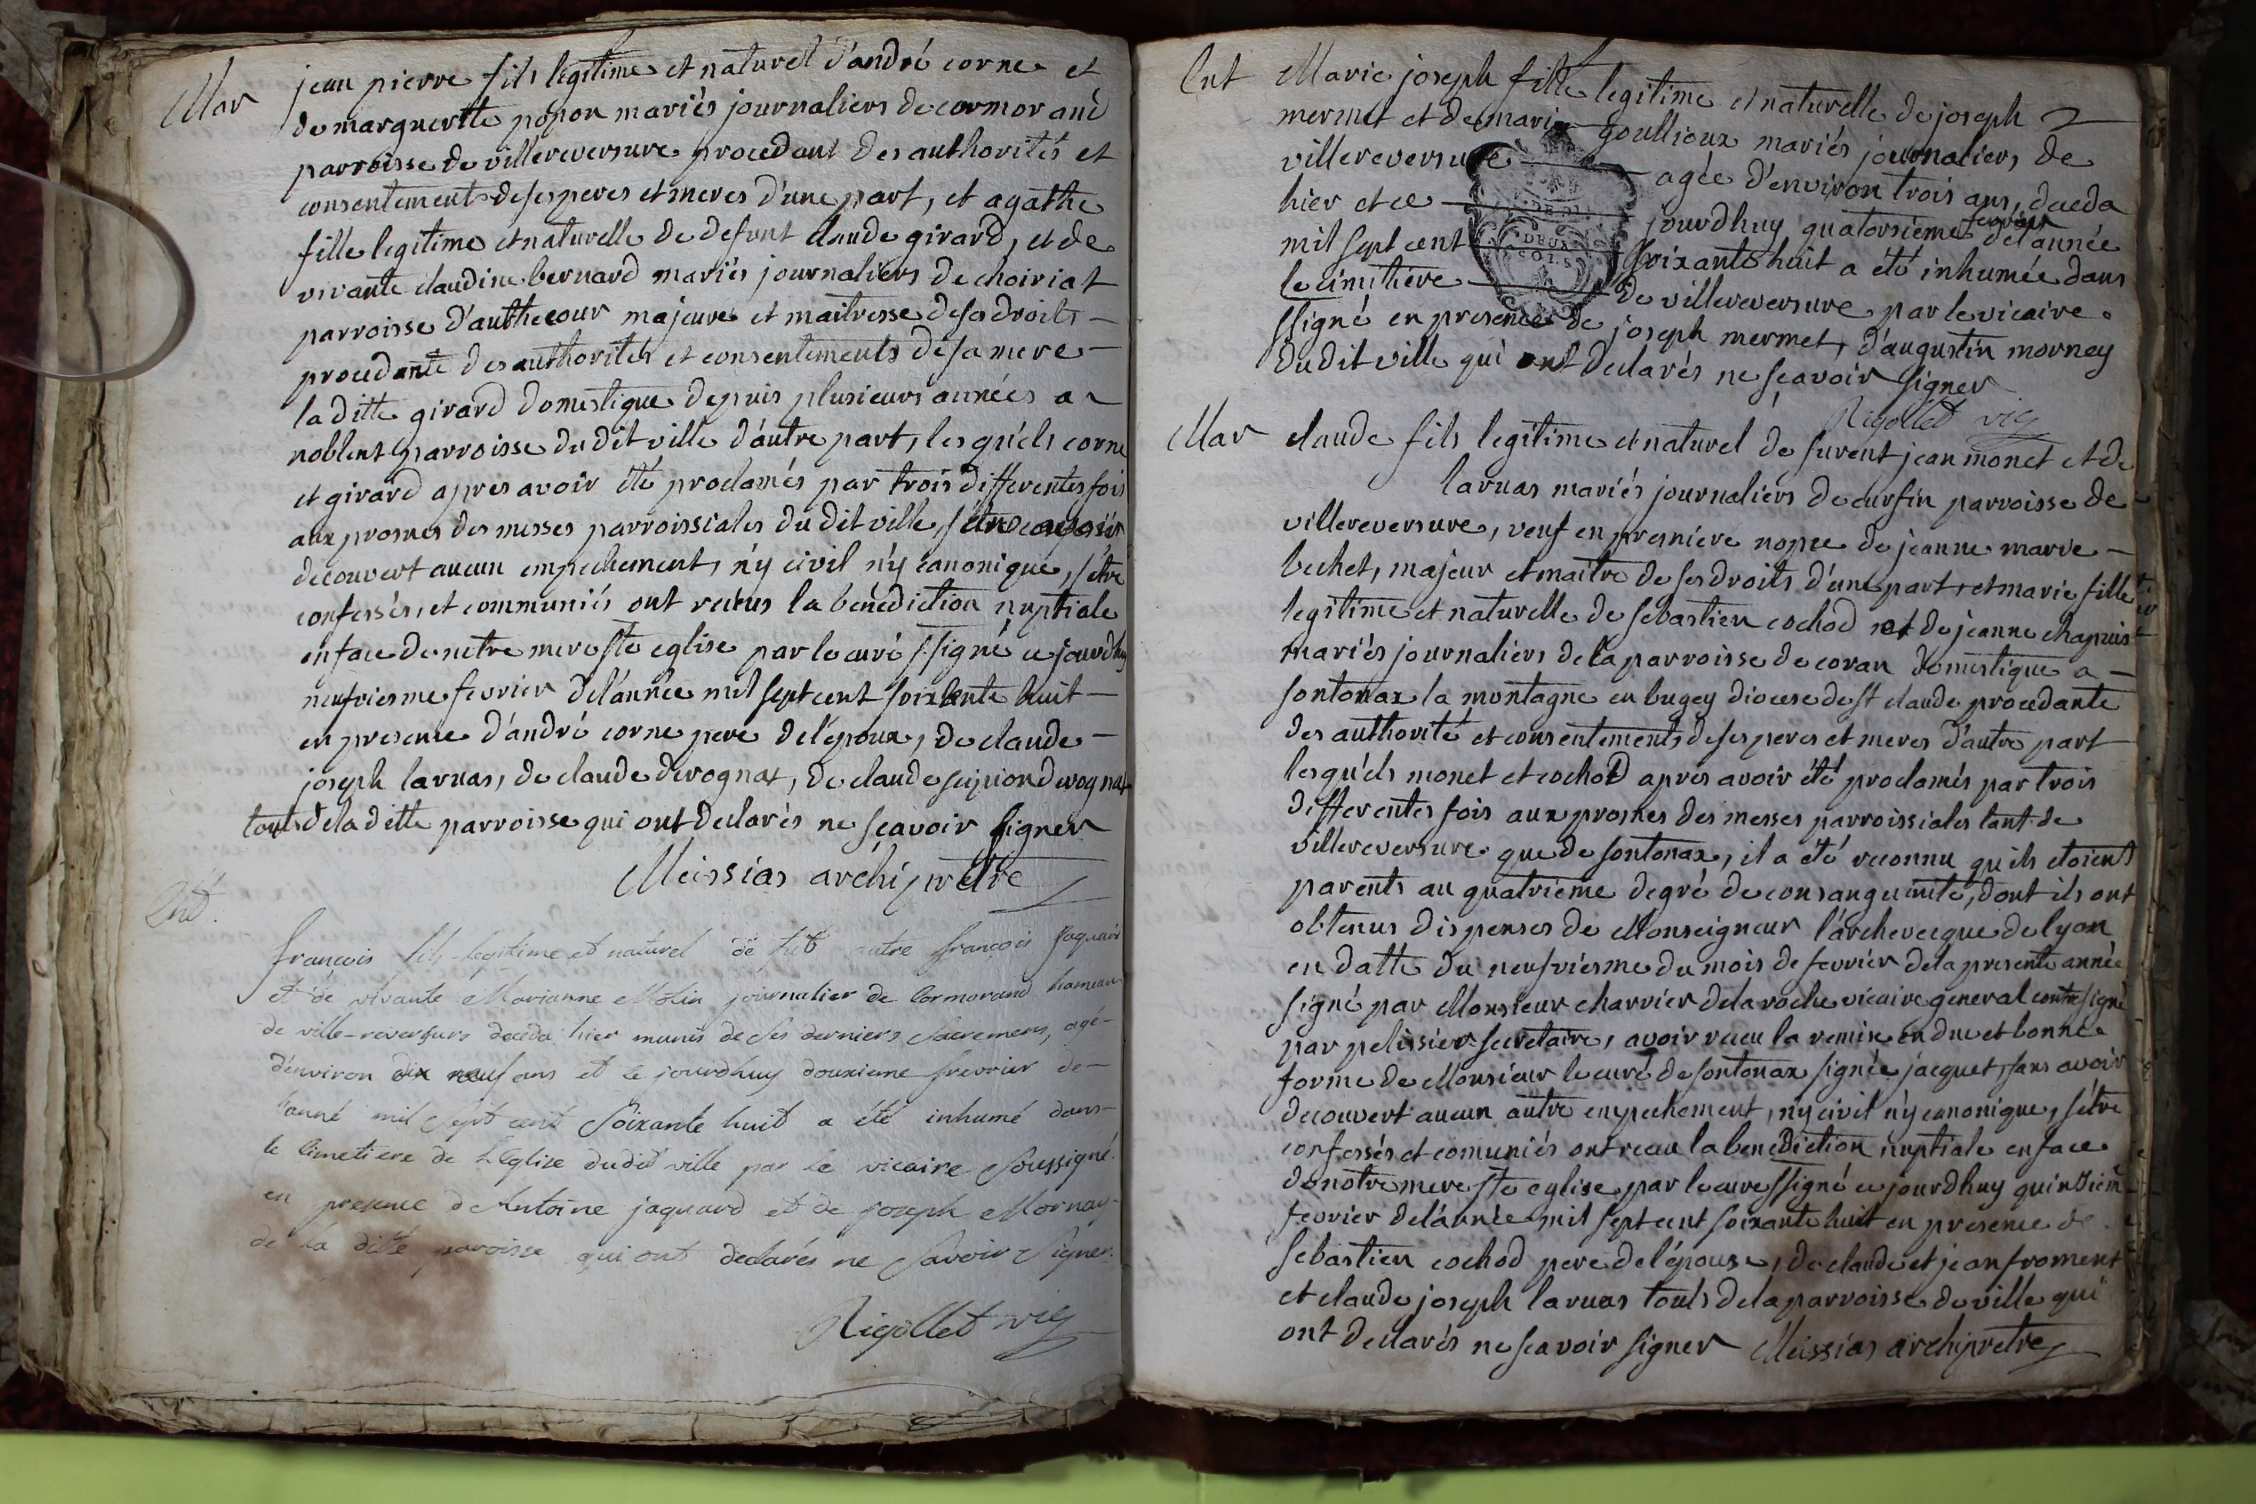 Mar
jean pierre fils legitime et naturel d'andré corne et
de marguerite popon mariés journaliers de cormorand
parroisse de villereversure procedant des authorités et
consentements de ses peres et meres d'une part, et agathe
fille legitime et naturelle de defunt claude girard, et de
vivante claudine bernard mariés journaliers de choiriat
parroisse d'authecour majeure et maitresse de ses droits
procedante des authorités et consentements de sa mere
la ditte girard domestique depuis plusieurs années a
noblent parroisse du dit ville d'autre part, les quéls corne
et girard apres avoir été proclamés par trois differentes fois
aux prosnes des messes parroissiales du dit ville,
decouvert aucun empechement, n'y civil n'y canonique, s'étre
confessés, et communiés ont recus la bénédiction nuptiale
en face de notre mere ste eglise par le curé ssigné ce jourdhuy
neufviesme fevrier de l'année mil sept cent soixante huit
en presence d'andré corne pere de l'époux, de claude
joseph laruas, de claude derognat, de claude scipion derognat
touts de la ditte parroisse qui ont declarés ne scavoir signer
Meissias archiprétre
Ent.
francois fils legitime et naturel de fut autre françois Jaquard
et de vivante Marianne Molin journalier de Cormorand hameau
de ville-reversure deceda hier munis de ses derniers Sacremens, agé
d'environ dix neuf ans et ce jourdhuy douzieme fevrier de
l'anné mil Sept cent Soixante huit a été inhumé dans
le Cimetiere de L'Eglise dudit ville par le vicaire Soussigné.
en presence d'Antoine jaquard et de joseph Mornay
de la ditte paroisse qui ont declarés ne Savoir Signer.
Rigollet vic
Ent
Marie joseph fille legitime et naturelle de joseph
mermet et de marie goullioux mariés journaliers de
villereversure agée d'environ trois ans, deceda
hier et ce jourdhuy quatorsieme fevrier de l'année
mil sept cent soixante huit a été inhumée dans
le cimetiere de villereversure par le vicaire
ssigné en presence de joseph mermet, d'augustin morney
du dit ville qui ont declarés ne scavoir signer
Rigollet vic
DEUX
SOLS
Mar
claude fils legitime et naturel de furent jean monet et de
laruas mariés journaliers de cursin parroisse de
villereversure, veuf en premiere nopce de jeanne marie
bechet, majeur et maitre de ses droits d'une part, et marie fille
legitime et naturelle de sebastien cochod et de jeanne chapuis
mariés journaliers de la parroisse de coran domestique a
sontonax la montagne en bugey diocese de st claude procedante
des authorité et consentements de ses peres et meres d'autre part
les quéls monet et cochod aprés avoir été proclamés par trois
differentes fois aux prosnes des messes parroissiales tant de
villereversure que de sontonax, il a été reconnu qu'ils étoient
parents au quatrieme degré de consanguinité, dont ils ont
obtenus dispenses de Monseigneur l'archeveque de lyon
en datte du neufviesme du mois de fevrier de la presente année
signé par Monsieur charrier de la roche vicaire general contresigné
par pelissier secretaire, avoir receu la remise en due et bonne
forme de Monsieur le curé de sontonax signée jacquet, sans avoir
decouvert aucun autre empechement, n'y civil n'y canonique, s'étre
confessés et comuniés ont receu la benediction nuptiale en face
de notre mere ste eglise par le cure ssigné ce jourdhuy quinziem
fevrier de l'année mil sept cent soixante huit en presence de
sebastien cochod pere de l'épouse, de claude et jean froment
et claude joseph laruas touts de la parroisse de ville qui
ont declarés ne scavoir signer Meissias archiprétre